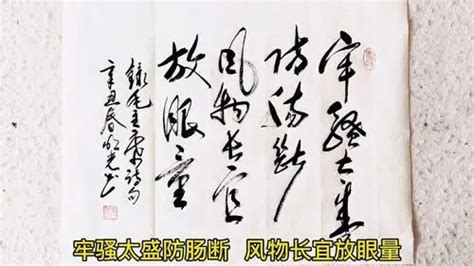 牢骚太盛
防肠断
风物长宜
放眼量
录毛主席诗句
辛丑春
牢骚太盛防肠断 风物长宜放眼量